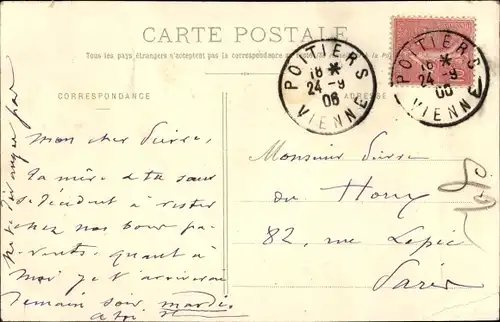 CARTE POSTALE
Tous les pays étrangers n'acceptent pas la correspondance
CORRESPONDANCE
ADRESSE
POITIERS
18 *
24 - 9
06
VIENNE
POITIERS
18 *
24 - 9
06
VIENNE
Mon cher Pierre,
la mère & ta sœur
se décident à rester
chez nos bons pa-
rents. quant à
moi je t'arriverai
demain soir mardi.
à toi
Monsieur Pierre
du
82, rue Lepic
Paris